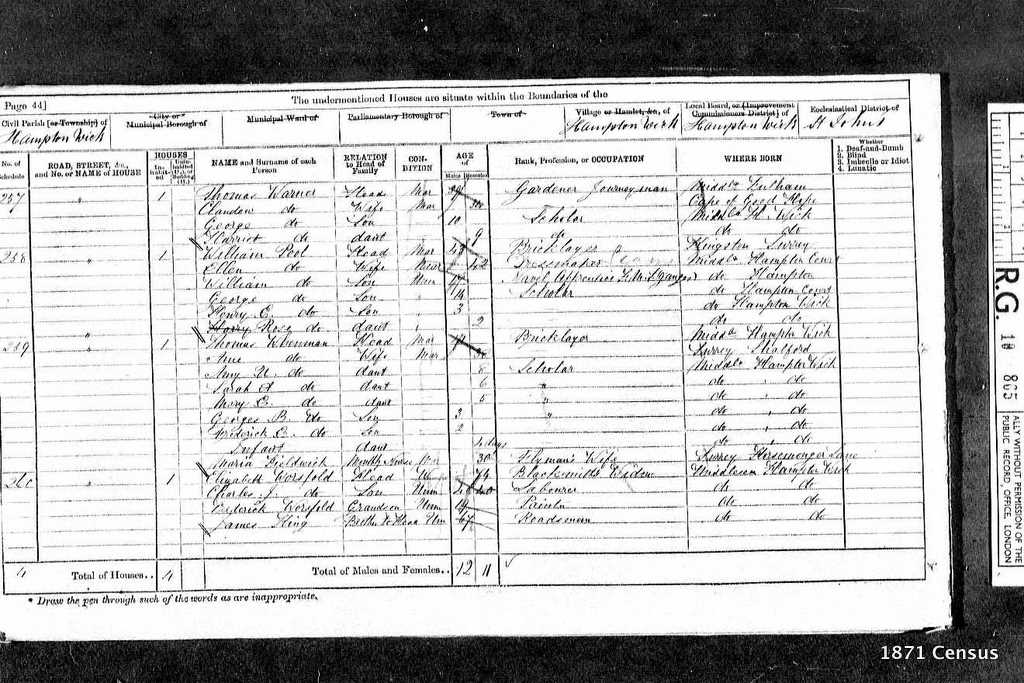 Page 44]
The undermentioned Houses are situate within the Boundaries of the
Civil Parish [or Township] of
Hampton Wick
City or Municipal Borough of
Municipal Ward of
Parliamentary Borough of
Town of
Village or Hamlet, &c., of
Hampton Wick
Local Board, or [Improvement Commissioners District] of
Hampton Wick
Ecclesiastical District of
St Johns
No. of Schedule
ROAD, STREET, &c., and No. or NAME of HOUSE
HOUSES
In-habited
NAME and Surname of each Person
RELATION to Head of Family
CON-DITION
AGE of
Males Females
Rank, Profession, or OCCUPATION
WHERE BORN
Whether
1. Deaf-and-Dumb
2. Blind
3. Imbecile or Idiot
4. Lunatic
257 " 1 Thomas Warner Head Mar Gardener Journeyman Middx Fulham
do Wife Mar Cape of Good Hope
George do Son 10 Scholar Middx H. Wick
Harriet do daur 9 do do do
258 " 1 William Pool Head Mar Bricklayer Kingston Surrey
Ellen do Wife Mar 42 Dressmaker Middx Hampton Court
William do Son Unm 17 Apprentice do Hampton
George do Son 14 Scholar do Hampton Court
Henry C. do Son 3 do Hampton Wick
Harry Rose do daur 2 do do
259 " 1 Thomas Head Mar Bricklayer Middx Hampton Wick
Ann do Wife Mar Surrey Shalford
Amy do daur 8 Scholar Middx Hampton Wick
Sarah A do daur 6 " do " do
Mary E. do daur 5 " do " do
George B. do Son 3 " do " do
Frederick C. do Son 2 do " do
Infant daur days do " do
Maria Fieldwick Monthly Nurse 30 Flyman's Wife Surrey Horsemonger Lane
260 " 1 Elizabeth Worsfold Head 79 Blacksmiths Widow Middlesex Hampton Wick
Charles J. do Son Unm Labourer do do
Frederick Worsfold Grandson Unm 19 Painter do do
James King Brother to Head Un 67 Roadsman do do
4 Total of Houses.. 4 Total of Males and Females.. 12 11
* Draw the pen through such of the words as are inappropriate.
R.G. 10 865
ALLY WITHOUT PERMISSION OF THE
PUBLIC RECORD OFFICE, LONDON
1871 Census